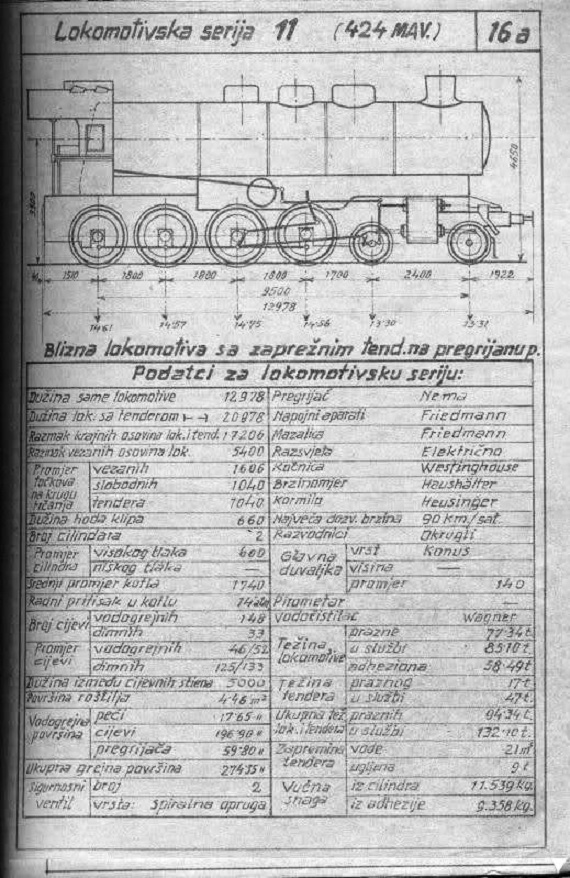 Lokomotivska serija 11 (424 MAV.) 16a
4650
1510 1800 1800 1800 1700 2400 1920
9500
12978
14·61 14·57 14·75 14·56 13·30 13·31
Blizna lokomotiva sa zaprežnim tend. na pregrijanu p.
Podatci za lokomotivsku seriju:
Dužina same lokomotive 12978
Dužina lok. sa tenderom 20978
Razmak krajnih osovina lok. i tend. 17206
Razmak vezanih osovina lok. 5400
Promjer točkova na krugu trčanja vezanih 1606
slobodnih 1040
tendera 1040
Dužina hoda klipa 660
Broj cilindara 2
Promjer cilindra visokog tlaka 600
niskog tlaka —
Srednji promjer kotla 1740
Radni pritisak u kotlu
Broj cijevi vodogrejnih 148
dimnih 33
Promjer cijevi vodogrejnih 46/52
dimnih 125/133
Dužina između cijevnih stiena 5000
Površina roštilja 4·46 m²
Vodogrejna površina peći 17·65 "
cijevi 196·90 "
pregrijača 59·80 "
Ukupna grejna površina 274·35 "
Sigurnosni ventil broj 2
vrsta: Spiralna opruga
Pregrijač Nema
Napojni aparati Friedmann
Mazalka Friedmann
Razsvjeta Električna
Kočnica Westinghouse
Brzinomjer Haushälter
Kormilo Heusinger
Najveća dozv. brzina 90 Km./sat.
Razvodnici Okrugli
Glavna duvaljka vrst Konus
visina —
promjer 140
Pirometar —
Vodočistilac Wagner
Težina lokomotive prazne 77·34 t.
u službi 85·10 t.
adheziona 58·49 t
Težina tendera praznog 17 t.
u službi 47 t.
Ukupna tež. lok. i tendera praznih 94·34 t.
u službi 132·10 t.
Zapremina tendera vode 21 m³
ugljena 9 t
Vučna snaga iz cilindra 11.539 kg.
iz adhezije 9.358 kg.